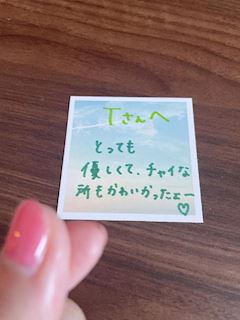 Tさんへ
とっても
優しくて、チャイな
所もかわいかったよー
♡